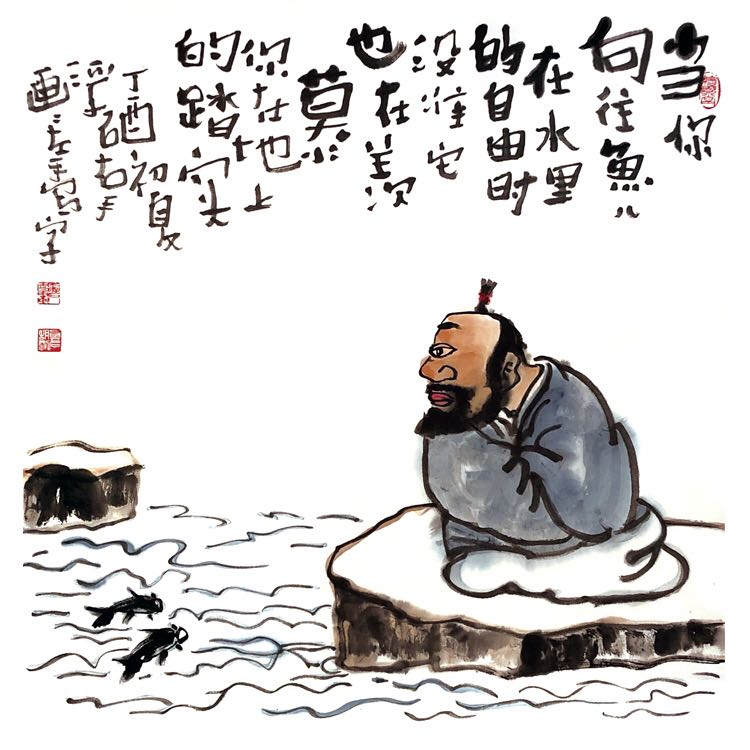 当你
向往魚儿
在水里
的自由时
没准它
也在羡
慕
你在地上
的踏实
丁酉初夏
浮石右手
画左手写字